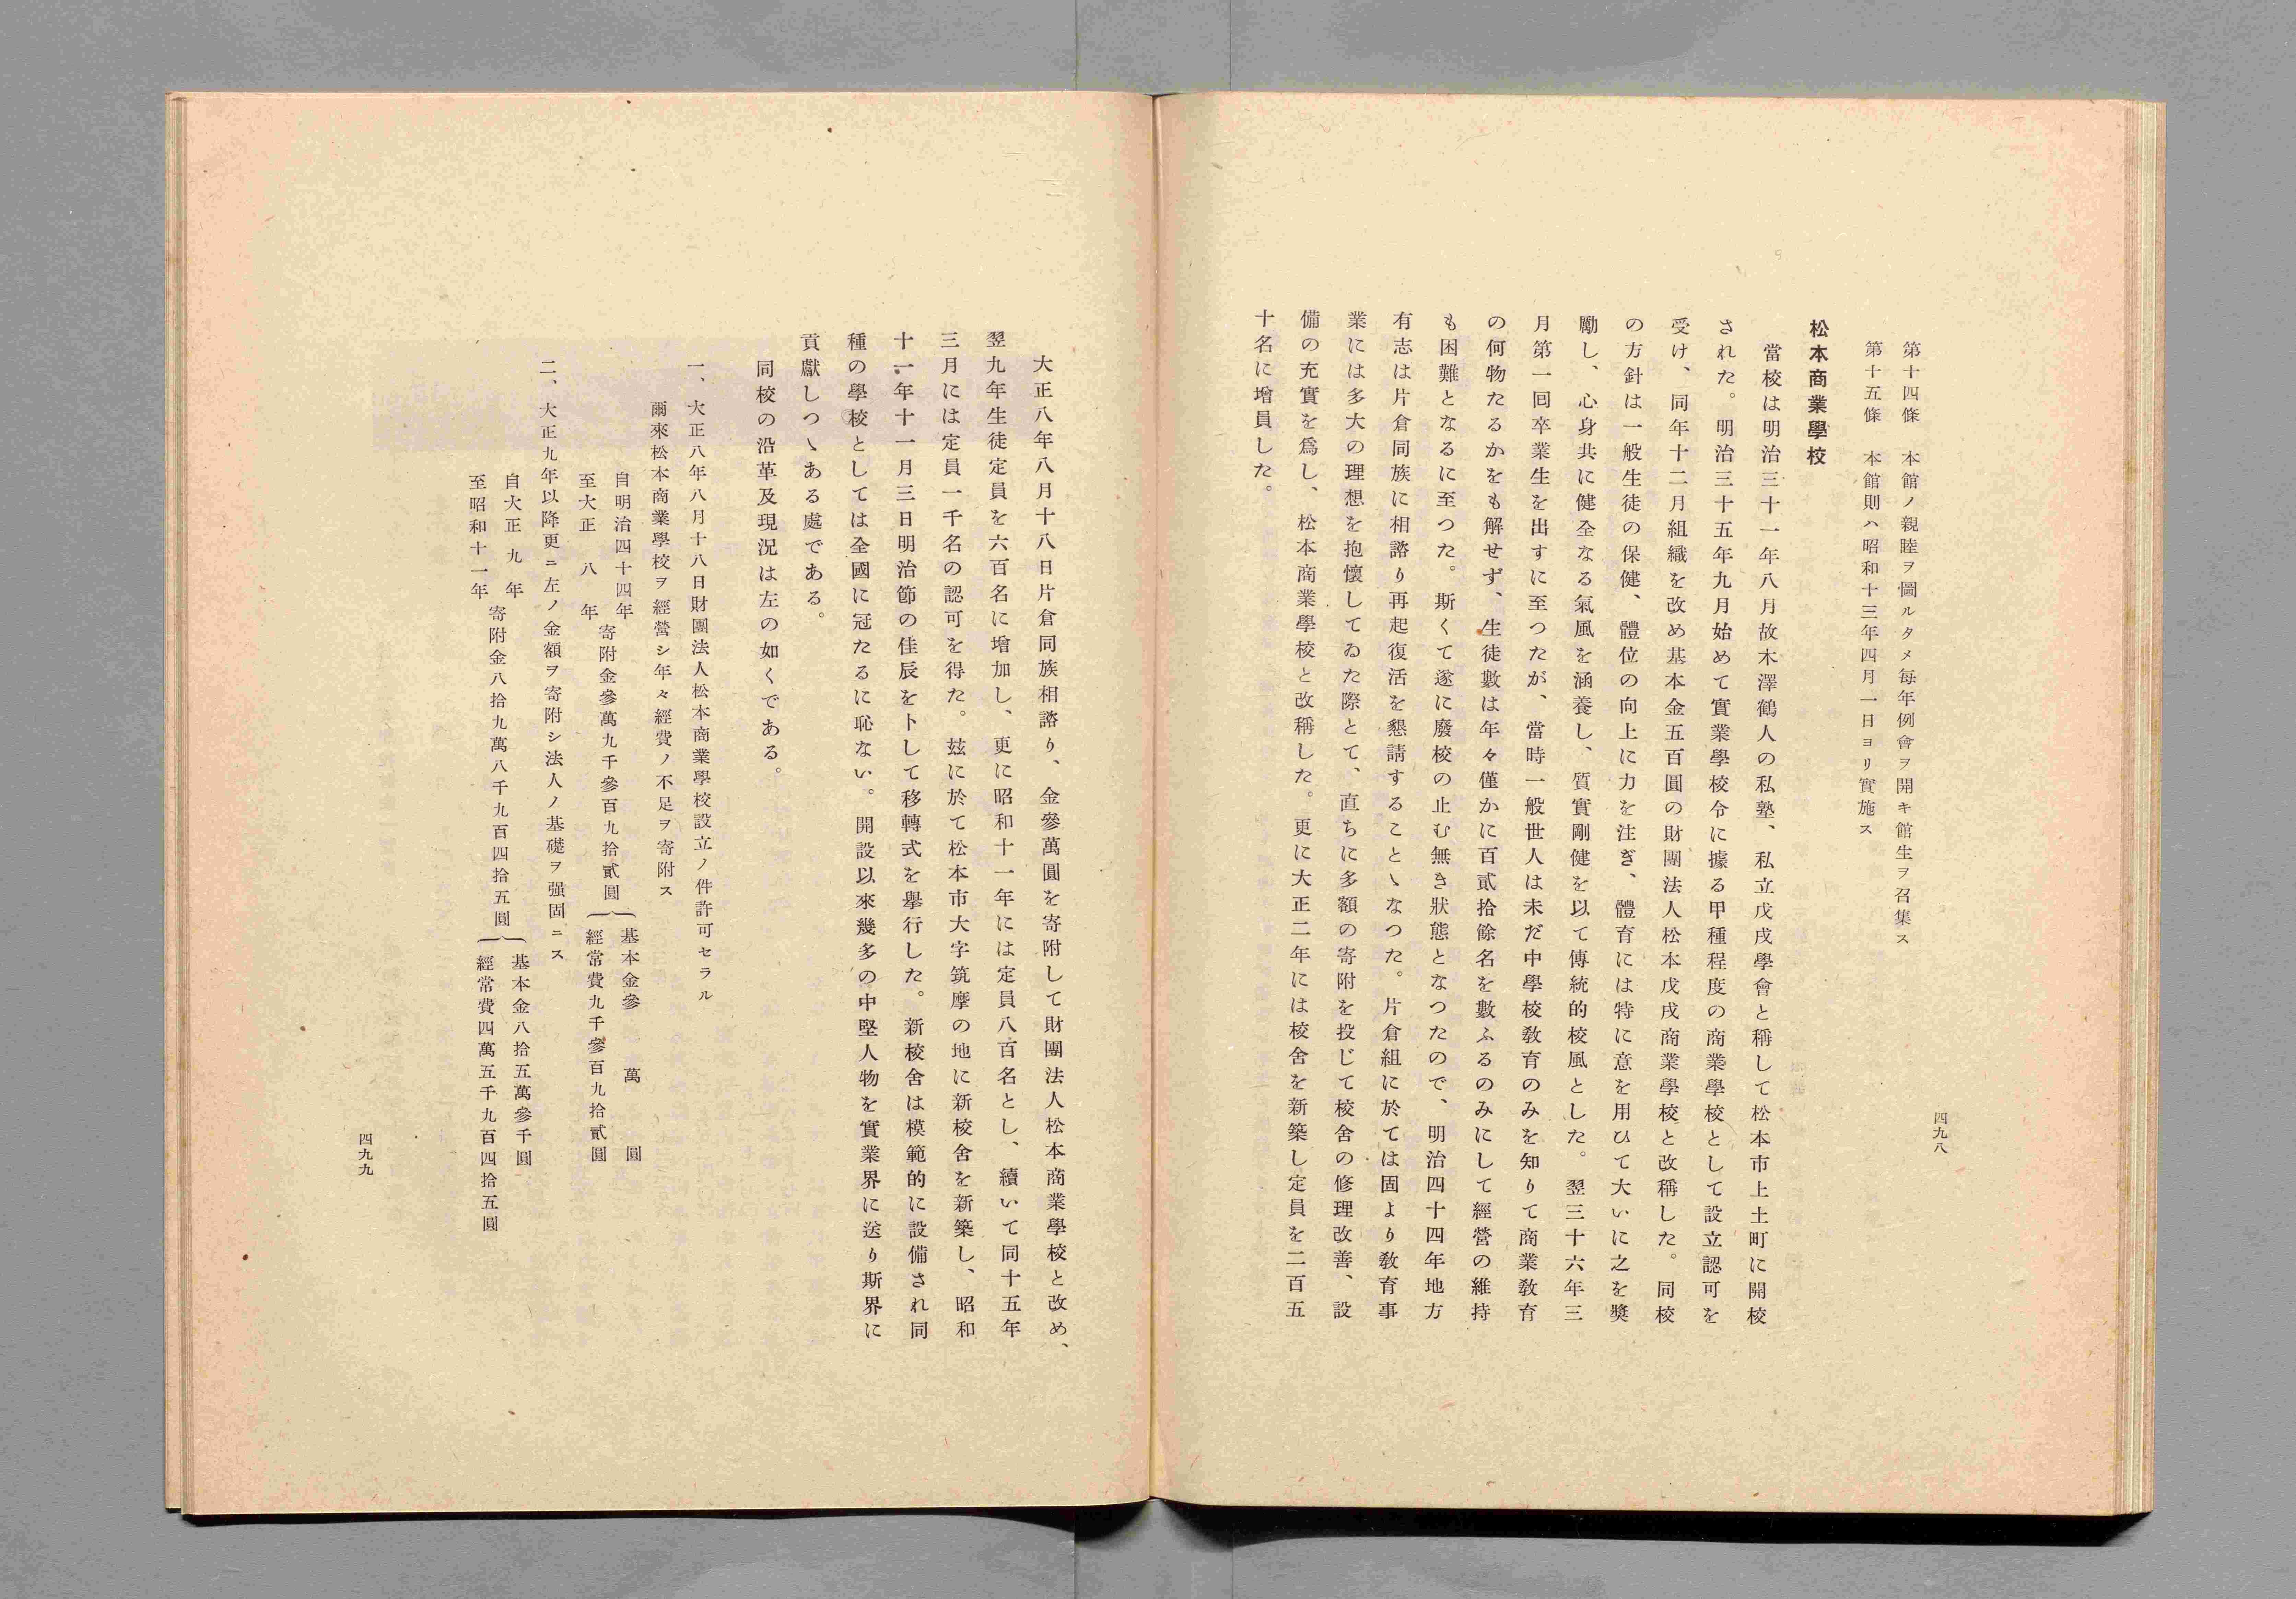 第十四條　本館ノ親睦ヲ圖ルタメ每年例會ヲ開キ館生ヲ召集ス
第十五條　本館則ハ昭和十三年四月一日ヨリ實施ス
松本商業學校
當校は明治三十一年八月故木澤鶴人の私塾、私立戊戌學會と稱して松本市上土町に開校
された。明治三十五年九月始めて實業學校令に據る甲種程度の商業學校として設立認可を
受け、同年十二月組織を改め基本金五百圓の財團法人松本戊戌商業學校と改稱した。同校
の方針は一般生徒の保健、體位の向上に力を注ぎ、體育には特に意を用ひて大いに之を奬
勵し、心身共に健全なる氣風を涵養し、質實剛健を以て傳統的校風とした。翌三十六年三
月第一回卒業生を出すに至つたが、當時一般世人は未だ中學校敎育のみを知りて商業敎育
の何物たるかをも解せず、生徒數は年々僅かに百貳拾餘名を數ふるのみにして經營の維持
も困難となるに至つた。斯くて遂に廢校の止む無き狀態となつたので、明治四十四年地方
有志は片倉同族に相諮り再起復活を懇請することゝなつた。片倉組に於ては固より敎育事
業には多大の理想を抱懷してゐた際とて、直ちに多額の寄附を投じて校舍の修理改善、設
備の充實を爲し、松本商業學校と改稱した。更に大正二年には校舍を新築し定員を二百五
十名に增員した。
四九八
大正八年八月十八日片倉同族相諮り、金參萬圓を寄附して財團法人松本商業學校と改め、
翌九年生徒定員を六百名に增加し、更に昭和十一年には定員八百名とし、續いて同十五年
三月には定員一千名の認可を得た。玆に於て松本市大字筑摩の地に新校舍を新築し、昭和
十一年十一月三日明治節の佳辰を卜して移轉式を擧行した。新校舍は模範的に設備され同
種の學校としては全國に冠たるに恥ない。開設以來幾多の中堅人物を實業界に送り斯界に
貢獻しつゝある處である。
同校の沿革及現況は左の如くである。
一、大正八年八月十八日財團法人松本商業學校設立ノ件許可セラル
爾來松本商業學校ヲ經營シ年々經費ノ不足ヲ寄附ス
自明治四十四年
至大正　八　年
寄附金參萬九千參百九拾貳圓
基本金參　萬　圓
經常費九千參百九拾貳圓
二、大正九年以降更ニ左ノ金額ヲ寄附シ法人ノ基礎ヲ强固ニス
自大正　九　年
至昭和十一年
寄附金八拾九萬八千九百四拾五圓
基本金八拾五萬參千圓
經常費四萬五千九百四拾五圓
四九九